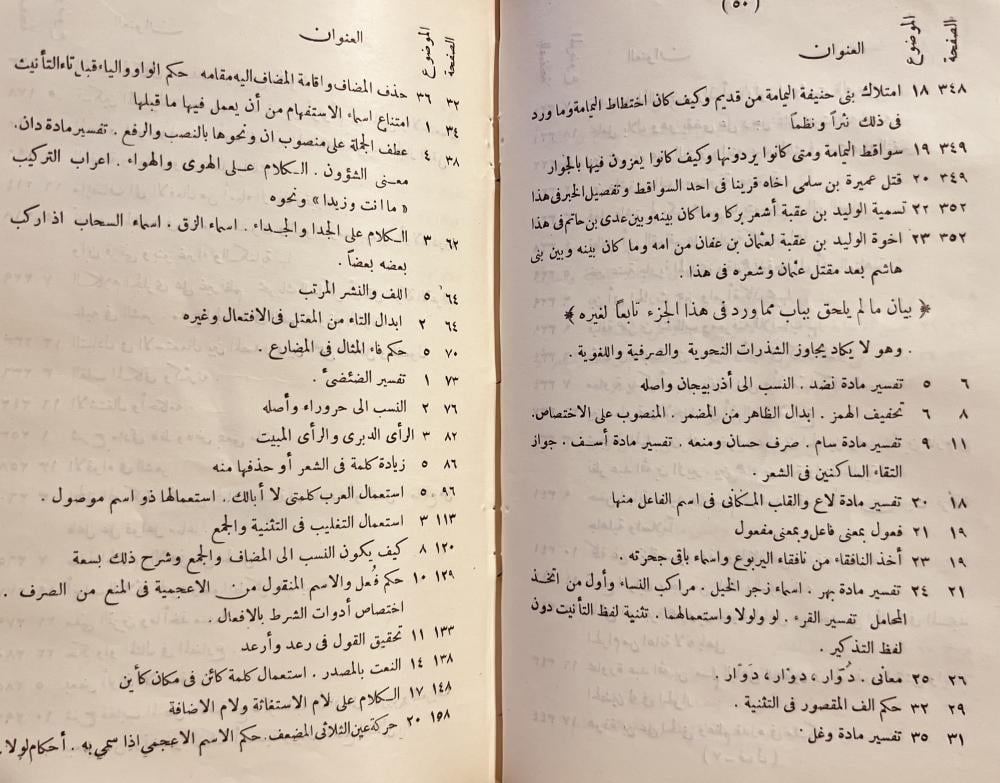 (٥٠)
الصفحة الموضوع العنوان
٣٤٨ ١٨ امتلاك بنى حنيفة اليمامة من قديم وكيف كان اختطاط اليمامة وما ورد
فى ذلك نثراً ونظماً
٣٤٩ ١٩ سواقط اليمامة ومتى كانوا يردونها وكيف كانوا يعزون فيها بالجوار
٣٤٩ ٢٠ قتل عميرة بن سلمى اخاه قرينا فى احد السواقط وتفصيل الخبر فى هذا
٣٥٢ ٢٢ تسمية الوليد بن عقبة أشعر بركا وما كان بينه وبين عدى بن حاتم فى هذا
٣٥٢ ٢٣ اخوة الوليد بن عقبة لعثمان بن عفان من امه وما كان بينه وبين بنى
هاشم بعد مقتل عثمان وشعره فى هذا .
﴿ بيان ما لم يلحق بباب مما ورد فى هذا الجزء تابعاً لغيره ﴾
. وهو لا يكاد يجاوز الشذرات النحوية والصرفية واللغوية .
٦ ٥ تفسير مادة نضد . النسب الى أذربيجان واصله
٨ ٦ تخفيف الهمز . ابدال الظاهر من المضمر . المنصوب على الاختصاص.
١١ ٩ تفسير مادة سام . صرف حسان ومنعه . تفسير مادة أسف . جواز
التقاء الساكنين فى الشعر .
١٨ ٢٠ تفسير مادة لاع والقلب المكانى فى اسم الفاعل منها
١٩ ٢١ فعول بمعنى فاعل وبمعنى مفعول
١٩ ٢٣ أخذ النافقاء من نافقاء اليربوع واسماء باقى جحرته .
٢١ ٢٤ تفسير مادة بهر . اسماء زجر الخيل . مراكب النساء وأول من اتخذ
المحامل تفسير القرء . لو ولولا واستعمالهما . تثنية لفظ التأنيث دون
لفظ التذكير .
٢٦ ٢٥ معانى . دُوّار ، دوار ، دَوّار .
٢٩ ٣٢ حكم الف المقصور فى التثنية .
٣١ ٣٥ تفسير مادة وغل .
الصفحة الموضوع العنوان
٣٢ ٣٦ حذف المضاف واقامة المضاف اليه مقامه حكم الواو والياء قبل تاء التأنيث
٣٤ ١ امتناع اسماء الاستفهام من أن يعمل فيها ما قبلها
٣٨ ٤ عطف الجملة على منصوب ان ونحوها بالنصب والرفع . تفسير مادة دان.
معنى الشؤون . الكلام على الهوى والهواء . اعراب التركيب
« ما انت وزيدا » ونحوه
٦٢ ٣ الكلام على الجدا والجداء . اسماء الزق . اسماء السحاب اذ اركب
بعضه بعضاً .
٦٤ ٥ اللف والنشر المرتب
٦٤ ٢ ابدال التاء من المعتل فى الافتعال وغيره
٧٠ ٥ حكم فاء المثال فى المضارع .
٧٣ ١ تفسير الضئضئ .
٧٦ ٢ النسب الى حروراء وأصله
٨٢ ٣ الرأى الدبرى والرأى المبيت
٨٦ ٥ زيادة كلمة فى الشعر أو حذفها منه
٩٦ ٥ استعمال العرب كلمتى لا أبالك . استعمالها ذو اسم موصول .
١١٣ ٣ استعمال التغليب فى التثنية والجمع
١٢٠ ٨ كيف يكون النسب الى المضاف والجمع وشرح ذلك بسعة
١٢٩ ١٠ حكم فُعل والاسم المنقول من الاعجمية فى المنع من الصرف .
اختصاص أدوات الشرط بالافعال .
١٣٣ ١١ تحقيق القول فى رعد وأرعد
١٣٨ ١٤ النعت بالمصدر . استعمال كلمة كائن فى مكان كأين
١٤٨ ١٧ الكلام على لام الاستغاثة ولام الاضافة
١٥٨ ٢٠ حركة عين الثلاثى المضعف. حكم الاسم الاعجمى اذا سمي به . أحكام لولا .